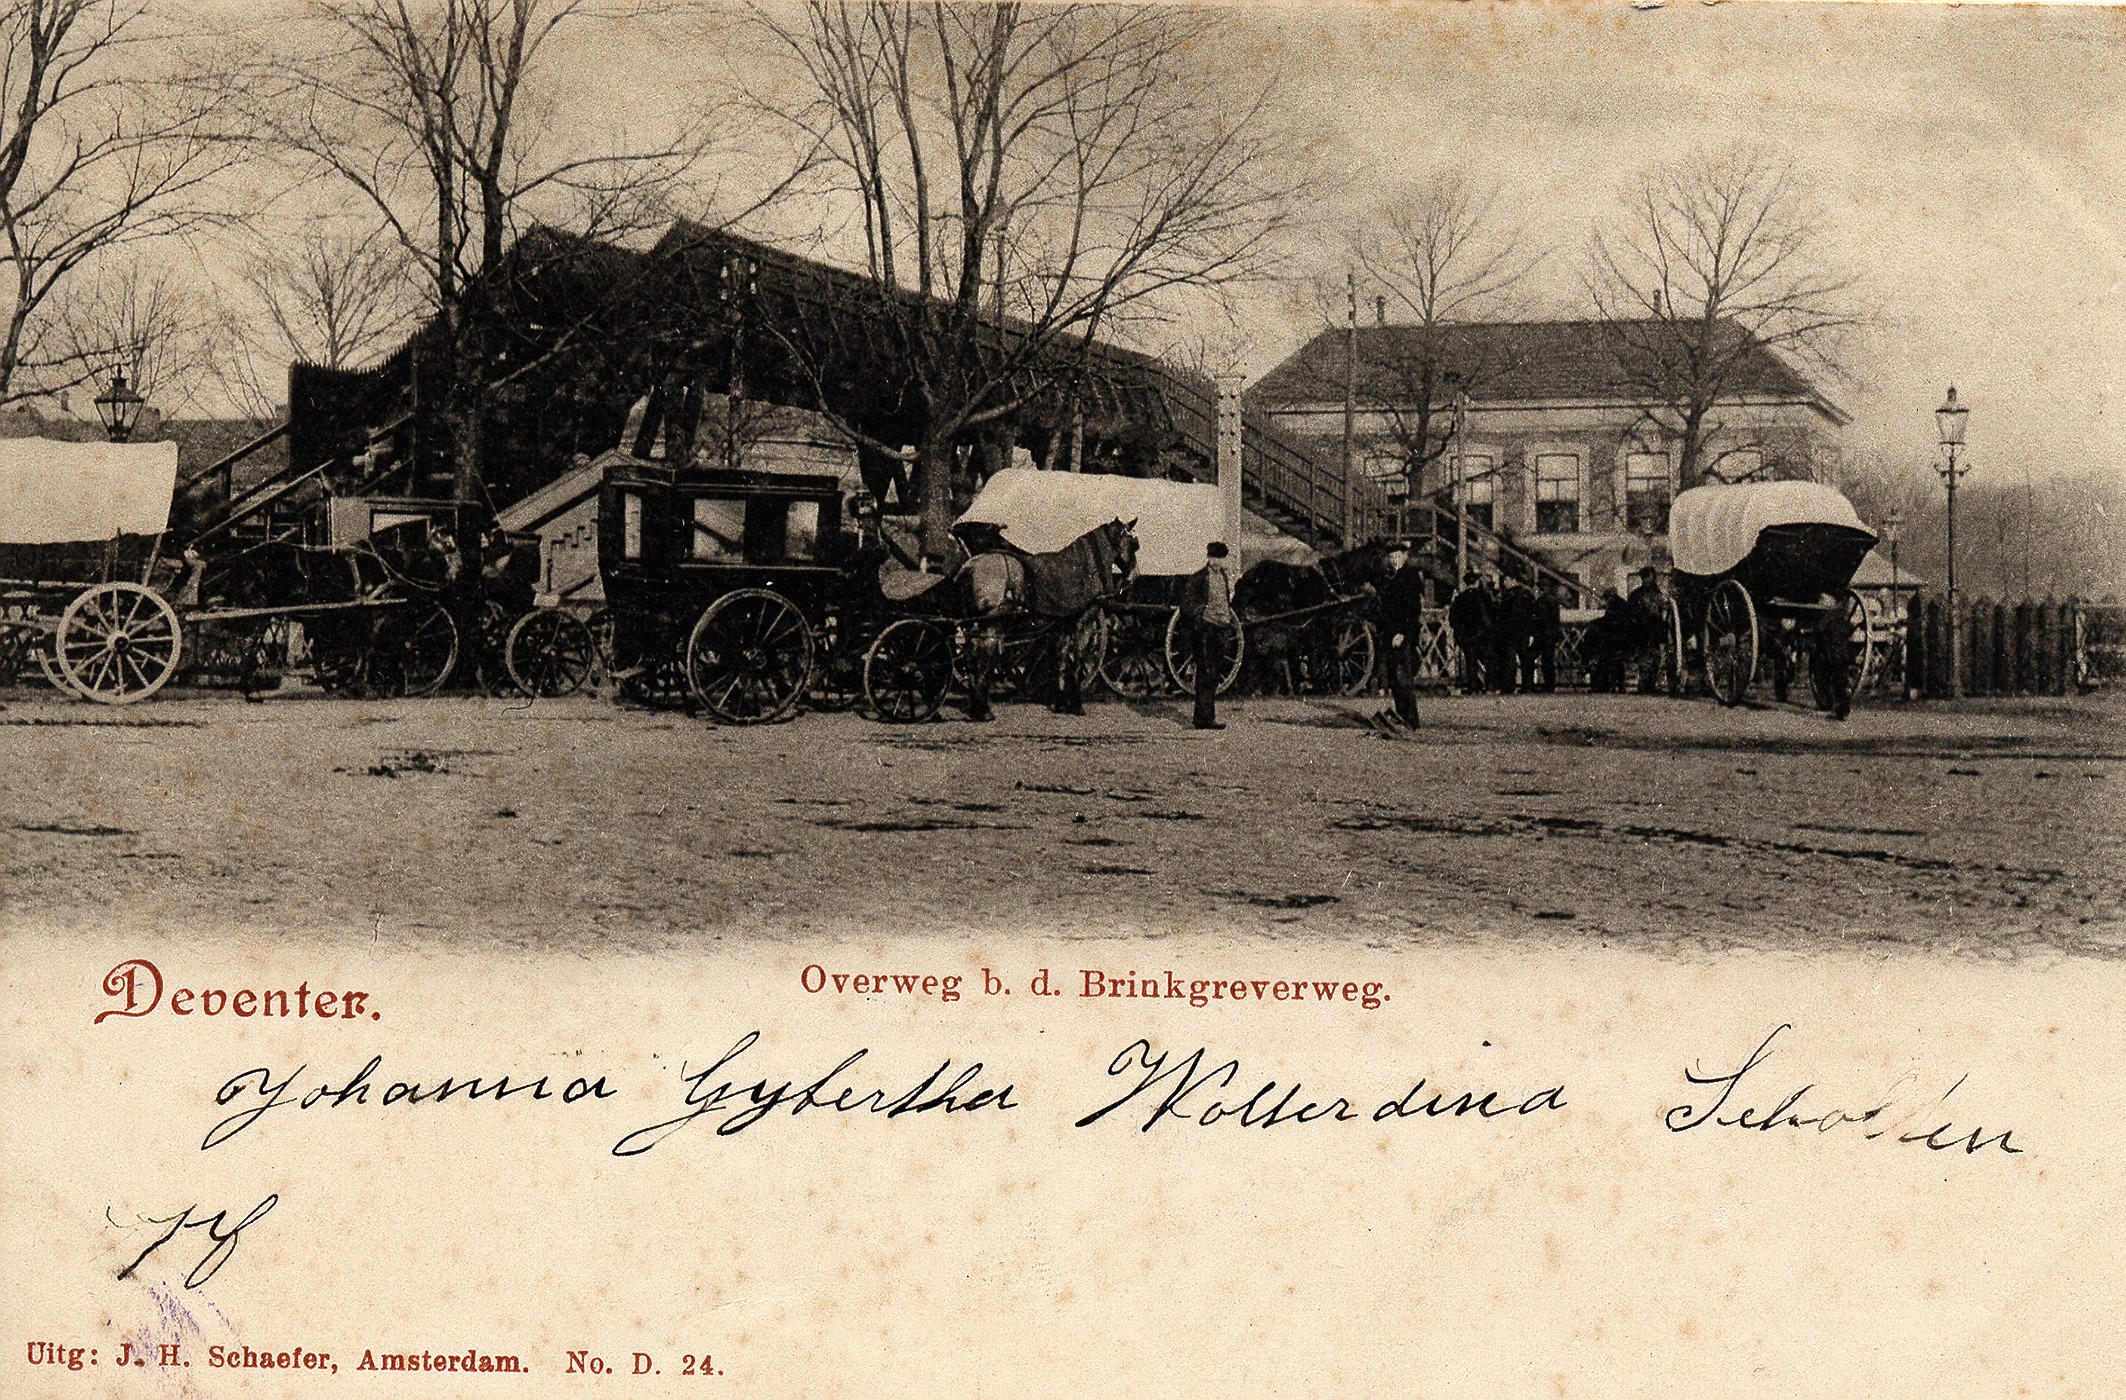 Deventer.
Overweg b. d. Brinkgreverweg.
Johanna Gybertha Wolterdina Scholten
Uitg: J. H. Schaefer, Amsterdam. No. D. 24.